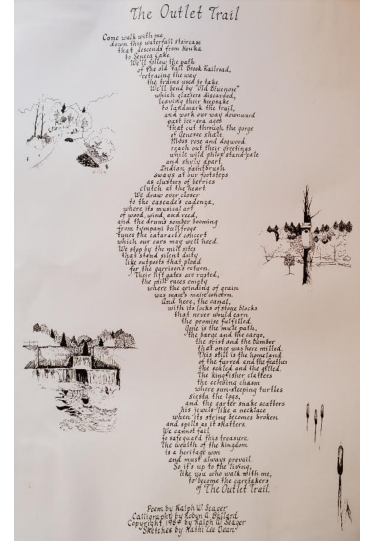 The Outlet Trail
Come walk with me,
down this waterfall staircase
that descends from Keuka
to Seneca Lake.
We'll follow the path
of the old Fall Brook Railroad,
retracing the way
the trains used to take.
We'll bend by "Old Bluenose"
which glaciers discarded,
leaving their keepsake
to landmark the trail,
and work our way downward
past ice-sea ages
that cut through the gorge
of Genesee shale.
Moss rose and dogwood
reach out their greetings
while wild phlox stand pale
and shyly apart.
Indian paintbrush
sways at our footsteps
as clusters of berries
clutch at the heart
We draw ever closer
to the cascade's cadenza,
where its musical art
of wood, wind, and reed,
and the drum's somber booming
from tympani bullfrogs
tunes the cataract's concert
which our ears may well heed.
We stop by the mill sites
that stand silent duty
like outposts that plead
for the garrison's return.
Their lift gates are rusted,
the mill races empty
where the grinding of grain
was man's main concern.
And here, the canal,
with its locks of stone blocks
that never would earn
the promise fulfilled.
Gone is the mule path,
the barge and the cargo,
the grist and the lumber
that once were here milled.
This still is the homeland
of the furred and the feather
the scaled and the gilled.
The kingfisher clatters
the echoing chasm
where sun-sleeping turtles
siesta the logs,
and the garter snake scatters
his jewels like a necklace
when its string becomes broken
and spills as it shatters.
We cannot fail
to safeguard this treasure.
The wealth of the kingdom
is a heritage won
and must always prevail.
So it's up to the living,
like you who walk with me,
to become the caretakers
of The Outlet Trail.
Poem by Ralph W. Seager
Calligraphy by Robyn A. Bullard
Copyright 1984 by Ralph W. Seager
Sketches by Kathi Lee Dean